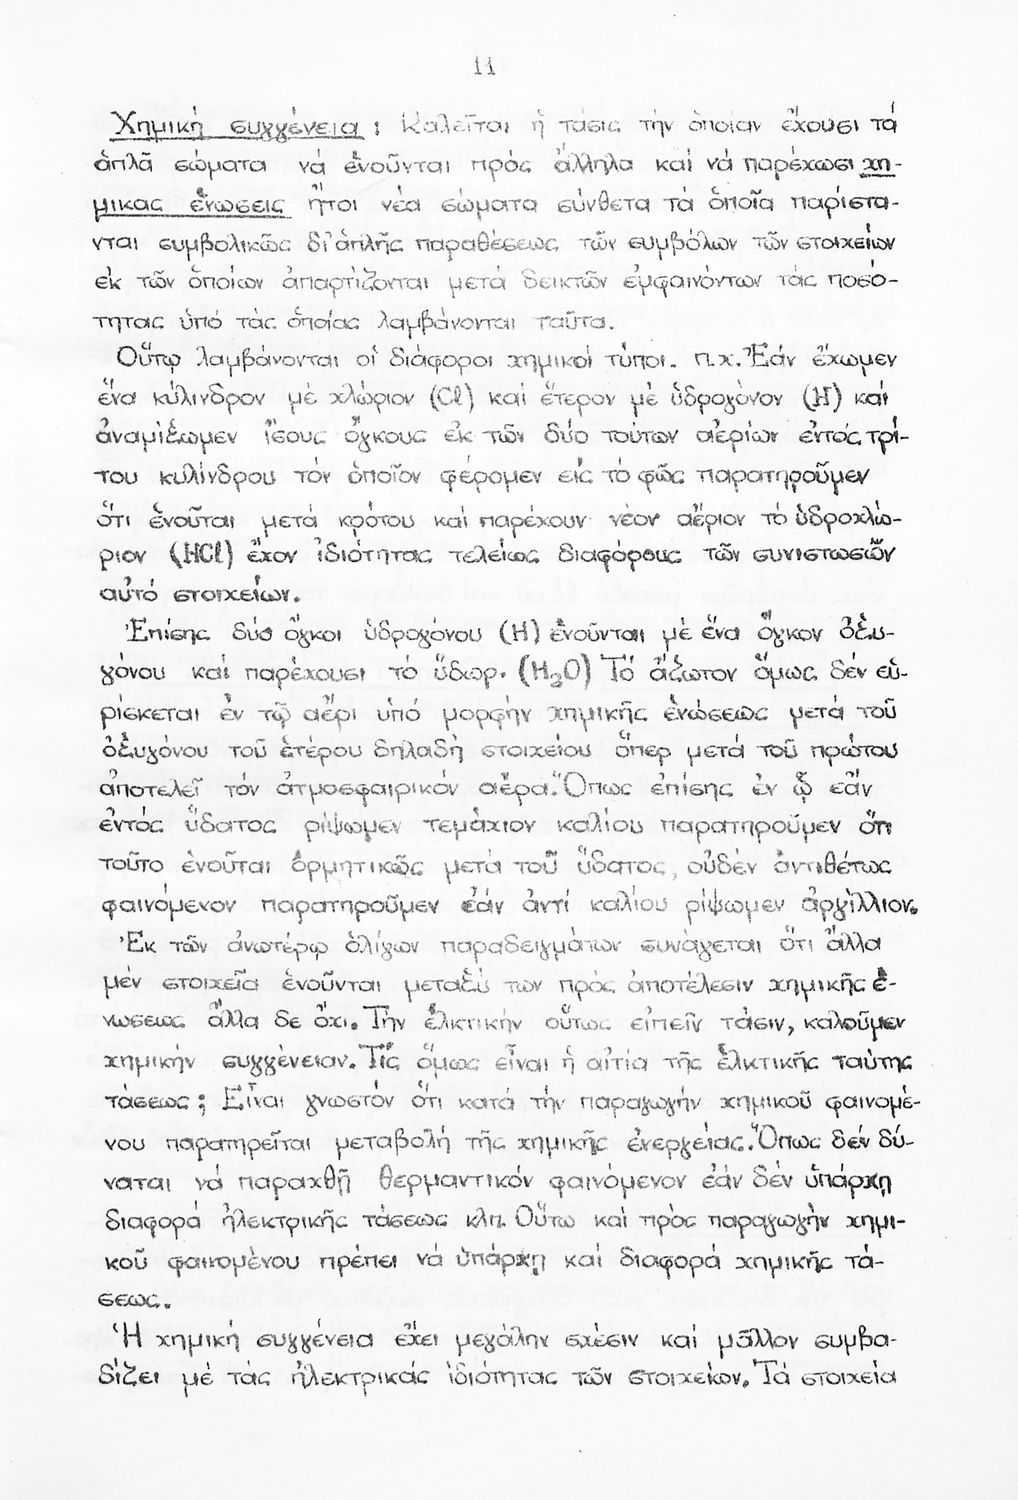 11
Χημική συγγένεια : Καλεῖται ἡ τάσις τήν ὁποίαν ἔχουσι τά
ἁπλᾶ σώματα νά ἑνοῦνται πρός ἄλληλα καί νά παρέχωσι χη-
μικας ἑνώσεις ἤτοι νέα σώματα σύνθετα τά ὁποῖα παρίστα-
νται συμβολικῶς δι' ἁπλῆς παραθέσεως τῶν συμβόλων τῶν στοιχείων
ἐκ τῶν ὁποίων ἀπαρτίζονται μετά δεικτῶν ἐμφαινόντων τάς ποσό-
τητας ὑπό τάς ὁποίας λαμβάνονται ταῦτα.
Οὕτῳ λαμβάνονται οἱ διάφοροι χημικοί τύποι. π.χ. Ἐάν ἔχωμεν
ἕνα κύλινδρον μέ χλώριον (Cl) καί ἕτερον μέ ὑδρογόνον (H) καί
ἀναμίξωμεν ἴσους ὄγκους ἐκ τῶν δύο τούτων αἰερίων ἐντός τρί-
του κυλίνδρου τόν ὁποῖον φέρομεν εἰς τό φῶς παρατηροῦμεν
ὅτι ἑνοῦται μετά κρότου καί παρέχουν νέον αἴριον τό ὑδροχλώ-
ριον (HCl) ἔχον ἰδιότητας τελείως διαφόρους τῶν συνιστωσῶν
αὐτό στοιχείων.
Ἐπίσης δύο ὄγκοι ὑδρογόνου (H) ἑνοῦνται μέ ἕνα ὄγκον ὀξυ-
γόνου καί παρέχουσι τό ὕδωρ. (H₂O) Τό ἄζωτον ὅμως δέν εὑ-
ρίσκεται ἐν τῷ αἔρι ὑπό μορφήν χημικῆς ἑνώσεως μετά τοῦ
ὀξυγόνου τοῦ ἑτέρου δηλαδή στοιχείου ὅπερ μετά τοῦ πρώτου
ἀποτελεῖ τόν ἀτμοσφαιρικόν αἔρα. Ὅπως ἐπίσης ἐν ᾧ εάν
ἐντός ὕδατος ρίψωμεν τεμάχιον καλίου παρατηροῦμεν ὅτι
τοῦτο ἑνοῦται ὁρμητικῶς μετά τοῦ ὕδατος, οὐδέν ἀντιθέτως
φαινόμενον παρατηροῦμεν ἐάν ἀντί καλίου ρίψωμεν ἀργίλλιον.
Ἐκ τῶν ἀνωτέρῳ ὀλίγων παραδειγμάτων συνάγεται ὅτι ἄλλα
μέν στοιχεῖα ἑνοῦνται μεταξύ των πρός ἀποτέλεσιν χημικῆς ἑ-
νώσεως ἄλλα δε ὄχι. Τήν ἑλκτικήν οὕτως εἰπεῖν τάσιν, καλοῦμεν
χημικήν συγγένειαν. Τίς ὅμως εἶναι ἡ αἰτία τῆς ἑλκτικῆς ταύτης
τάσεως; Εἶναι γνωστόν ὅτι κατά τήν παραγωγήν χημικοῦ φαινομέ-
νου παρατηρεῖται μεταβολή τῆς χημικῆς ἐνεργείας. Ὅπως δέν δύ-
ναται νά παραχθῇ θερμαντικόν φαινόμενον ἐάν δέν ὑπάρχῃ
διαφορά ἠλεκτρικῆς τάσεως κλπ. Οὕτω καί πρός παραγωγήν χημι-
κοῦ φαινομένου πρέπει νά ὑπάρχῃ καί διαφορά χημικῆς τά-
σεως.
Ἡ χημική συγγένεια ἔχει μεγάλην σχέσιν καί μᾶλλον συμβα-
δίζει μέ τάς ἠλεκτρικάς ἰδιότητας τῶν στοιχείων. Τά στοιχεία